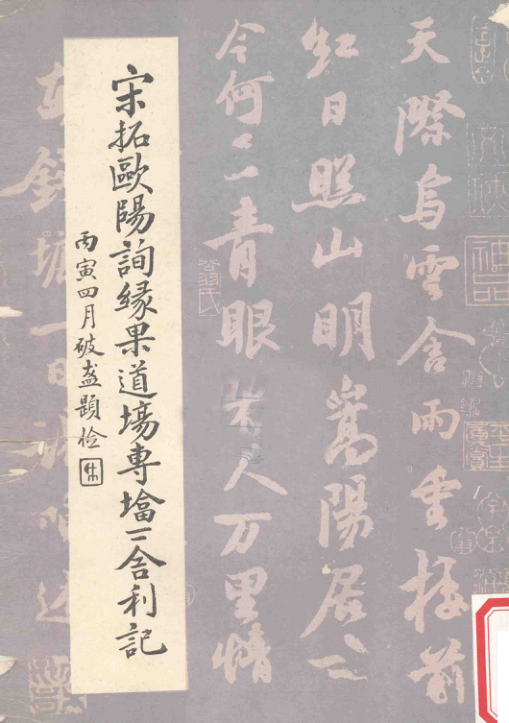 天際烏雲含雨重樓前
紅日照山明嵩陽居士
今何在青眼看人万里情
宋拓歐陽詢緣果道場專墖下舍利記
丙寅四月破盋題检